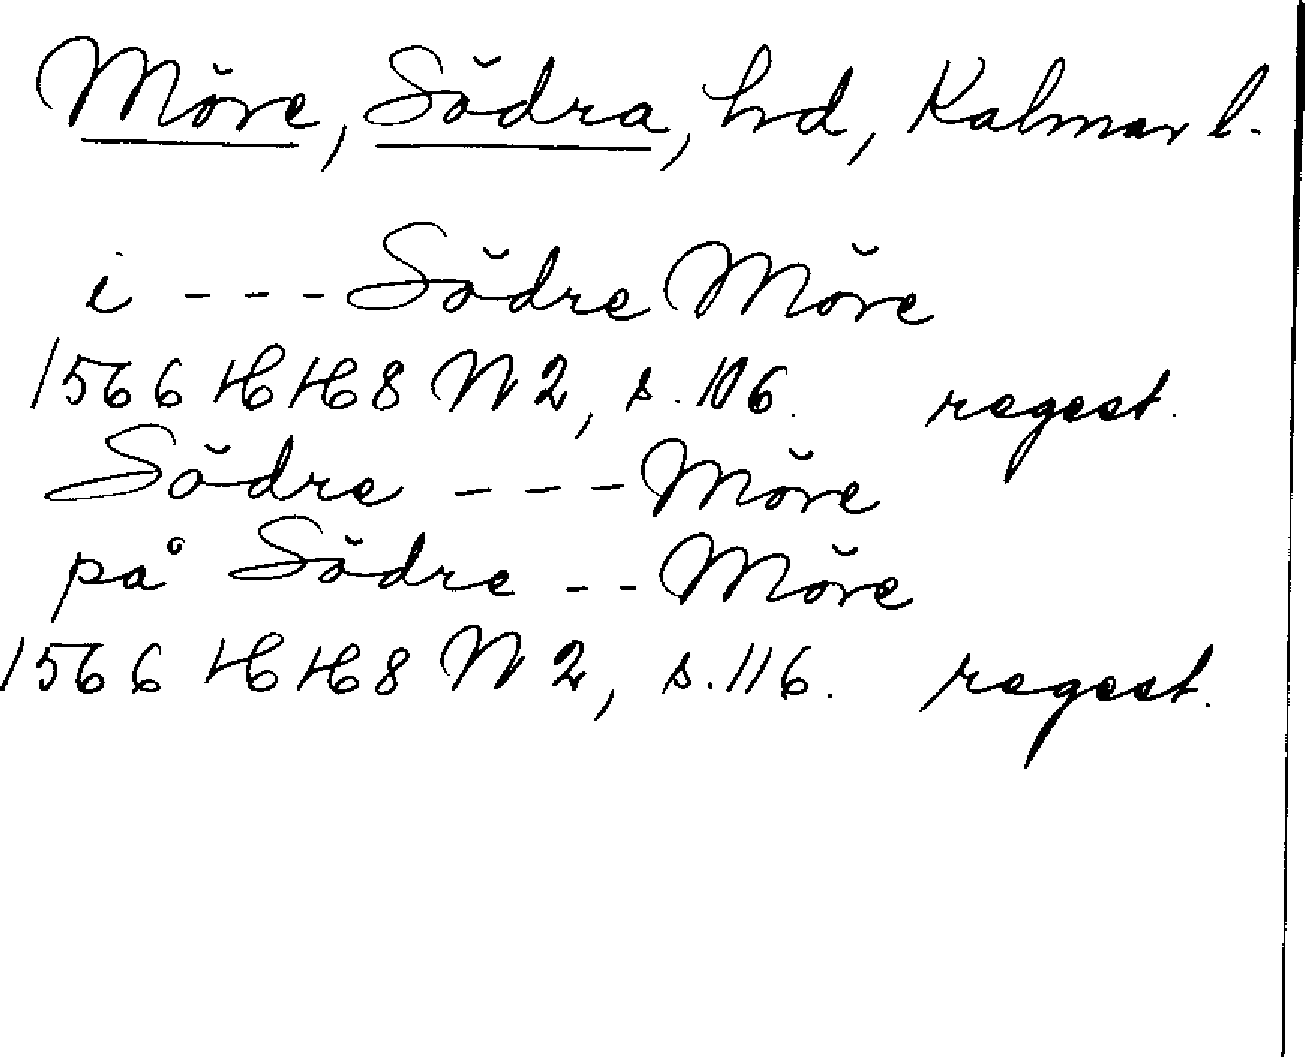 Möre, Södra, hrd, Kalmar l.
i --- Södre Möre
1566 HH 8 N 2, s. 106. regest.
Södre --- Möre
på Södre -- Möre
1566 HH 8 N 2, s. 116. regest.